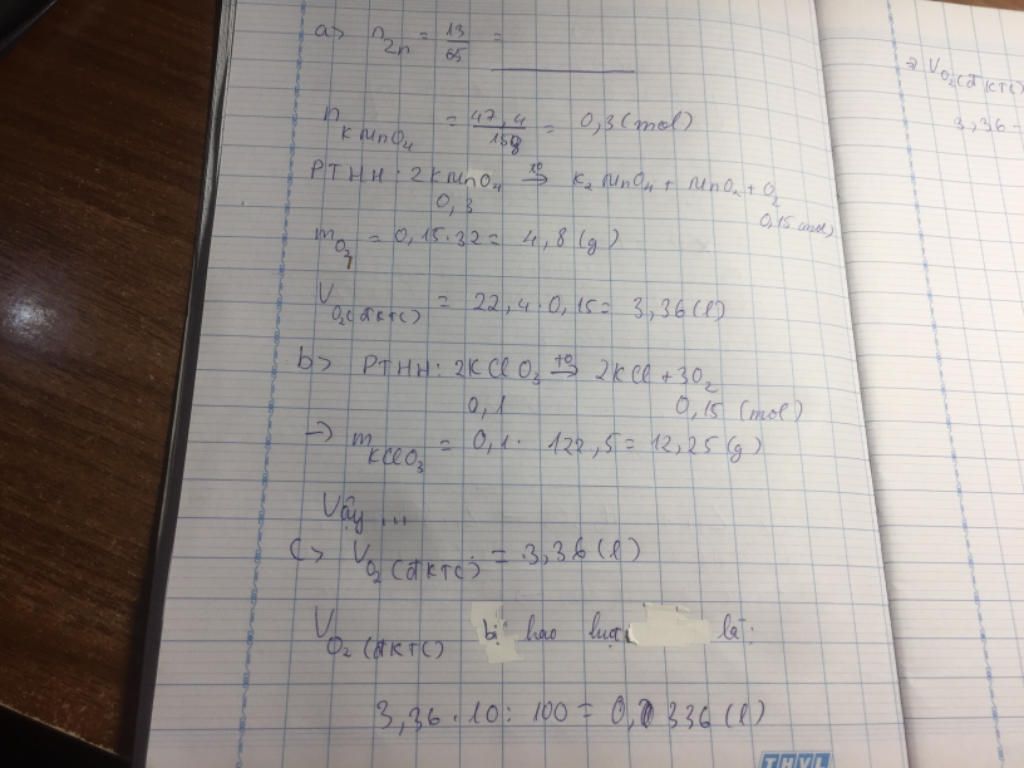 a> n Zn = 13/65 =
n KMnO4 = 47,4/158 = 0,3 (mol)
PTHH: 2KMnO4 t° → K2MnO4 + MnO2 + O2
0,3 0,15 (mol)
m O2 = 0,15.32 = 4,8 (g)
V O2(đktc) = 22,4.0,15 = 3,36 (l)
b> PTHH: 2KClO3 t° → 2KCl + 3O2
0,1 0,15 (mol)
→ m KClO3 = 0,1. 122,5 = 12,25 (g)
Vậy ...
c> V O2 (đktc) = 3,36 (l)
V O2 (đktc) bị hao hụt là:
3,36.10:100 = 0,336 (l)
THYL
→ V O2(đktc)
3,36 -